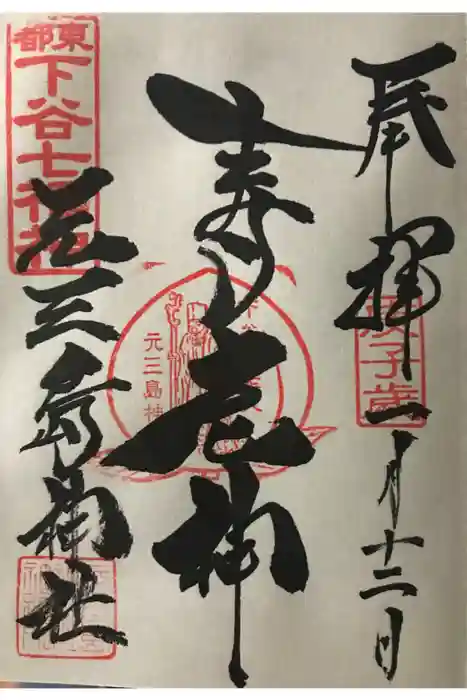 奉拝
庚子歳
一月十二日
寿老神
元三島神
東都
下谷七福神
元三島神社